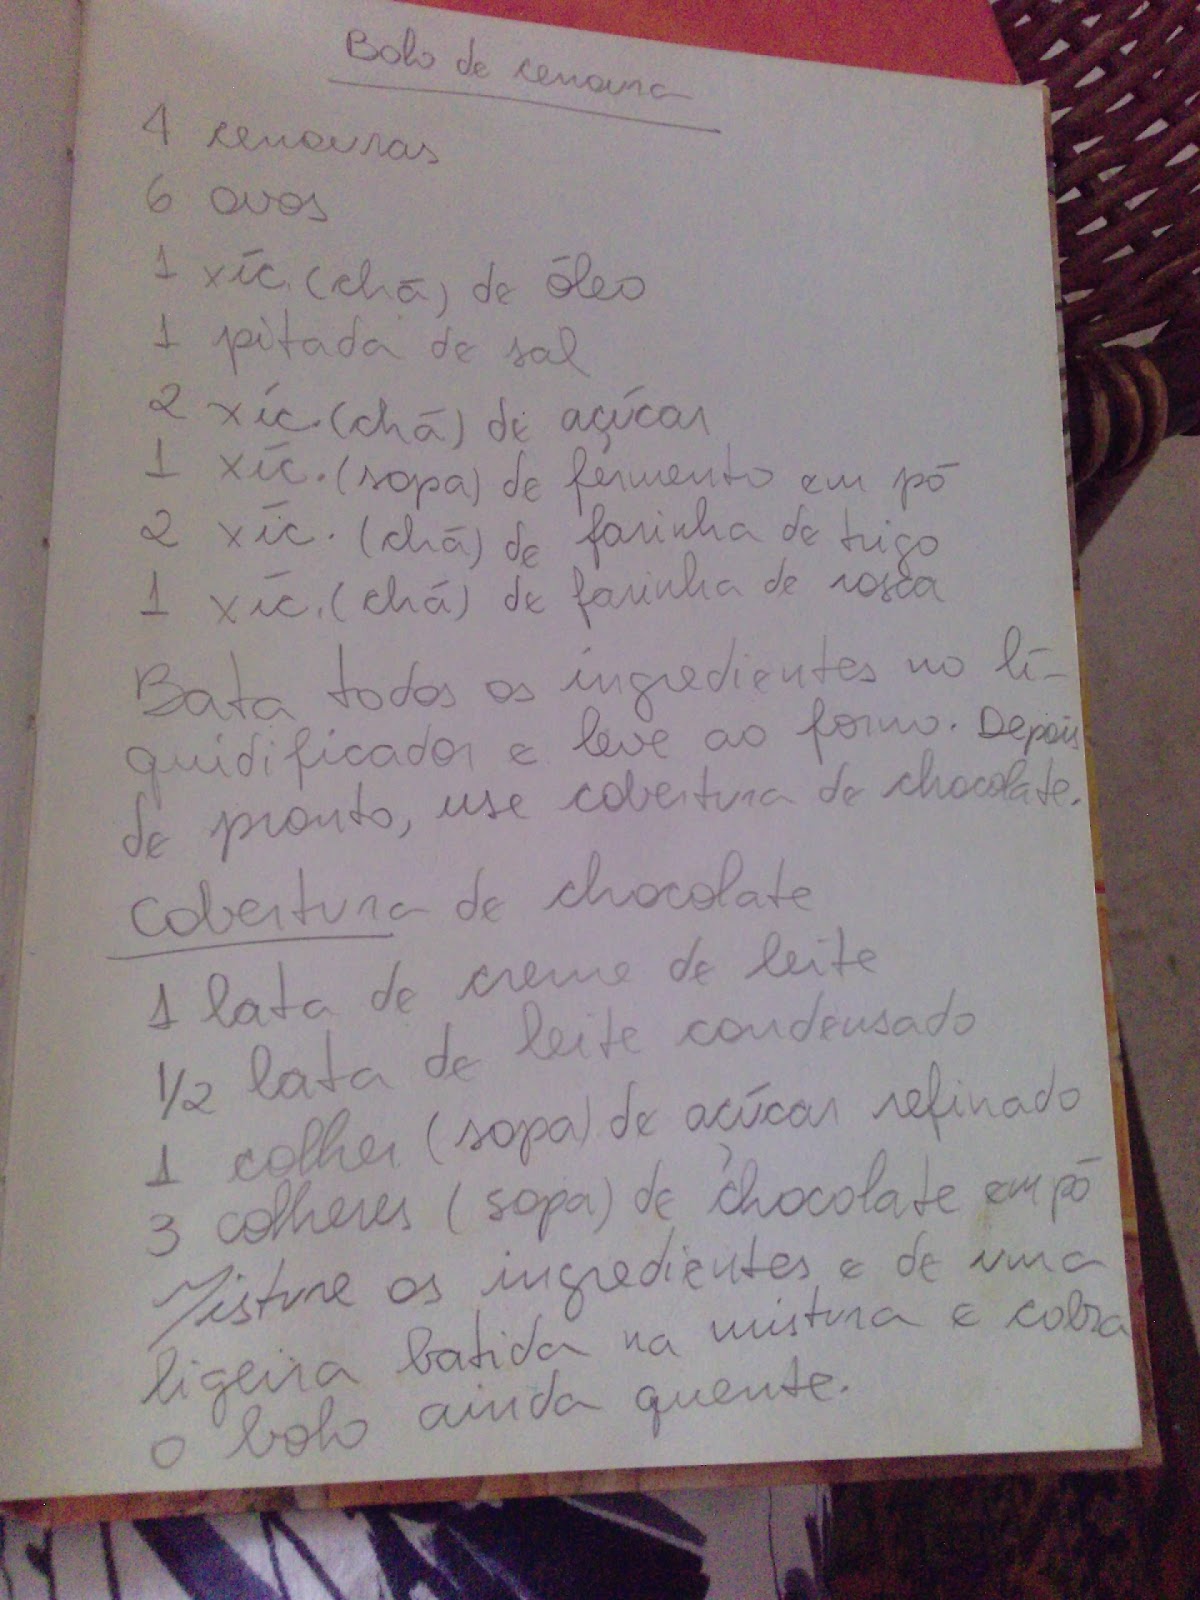 Bolo de cenoura
4 cenouras
6 ovos
1 xíc. (chá) de óleo
1 pitada de sal
2 xíc. (chá) de açúcar
1 xíc. (sopa) de fermento em pó
2 xíc. (chá) de farinha de trigo
1 xíc. (chá) de farinha de rosca
Bata todos os ingredientes no li-
quidificador e leve ao forno. Depois
de pronto, use cobertura de chocolate.
Cobertura de chocolate
1 lata de creme de leite
1/2 lata de leite condensado
1 colher (sopa) de açúcar refinado
3 colheres (sopa) de chocolate em pó
Misture os ingredientes e de uma
ligeira batida na mistura e cobra
o bolo ainda quente.